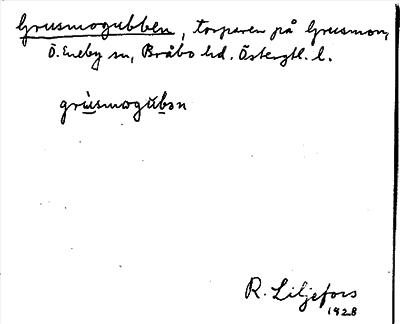 Grusmogubben, torparen på Grusmon,
Ö. Eneby sn, Bråbo hd. Östergtl. l.
grùsmogúbən
R. Liljefors
1928